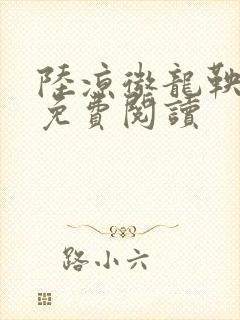 陸凉徹龍鞅
免費閱讀
路小六